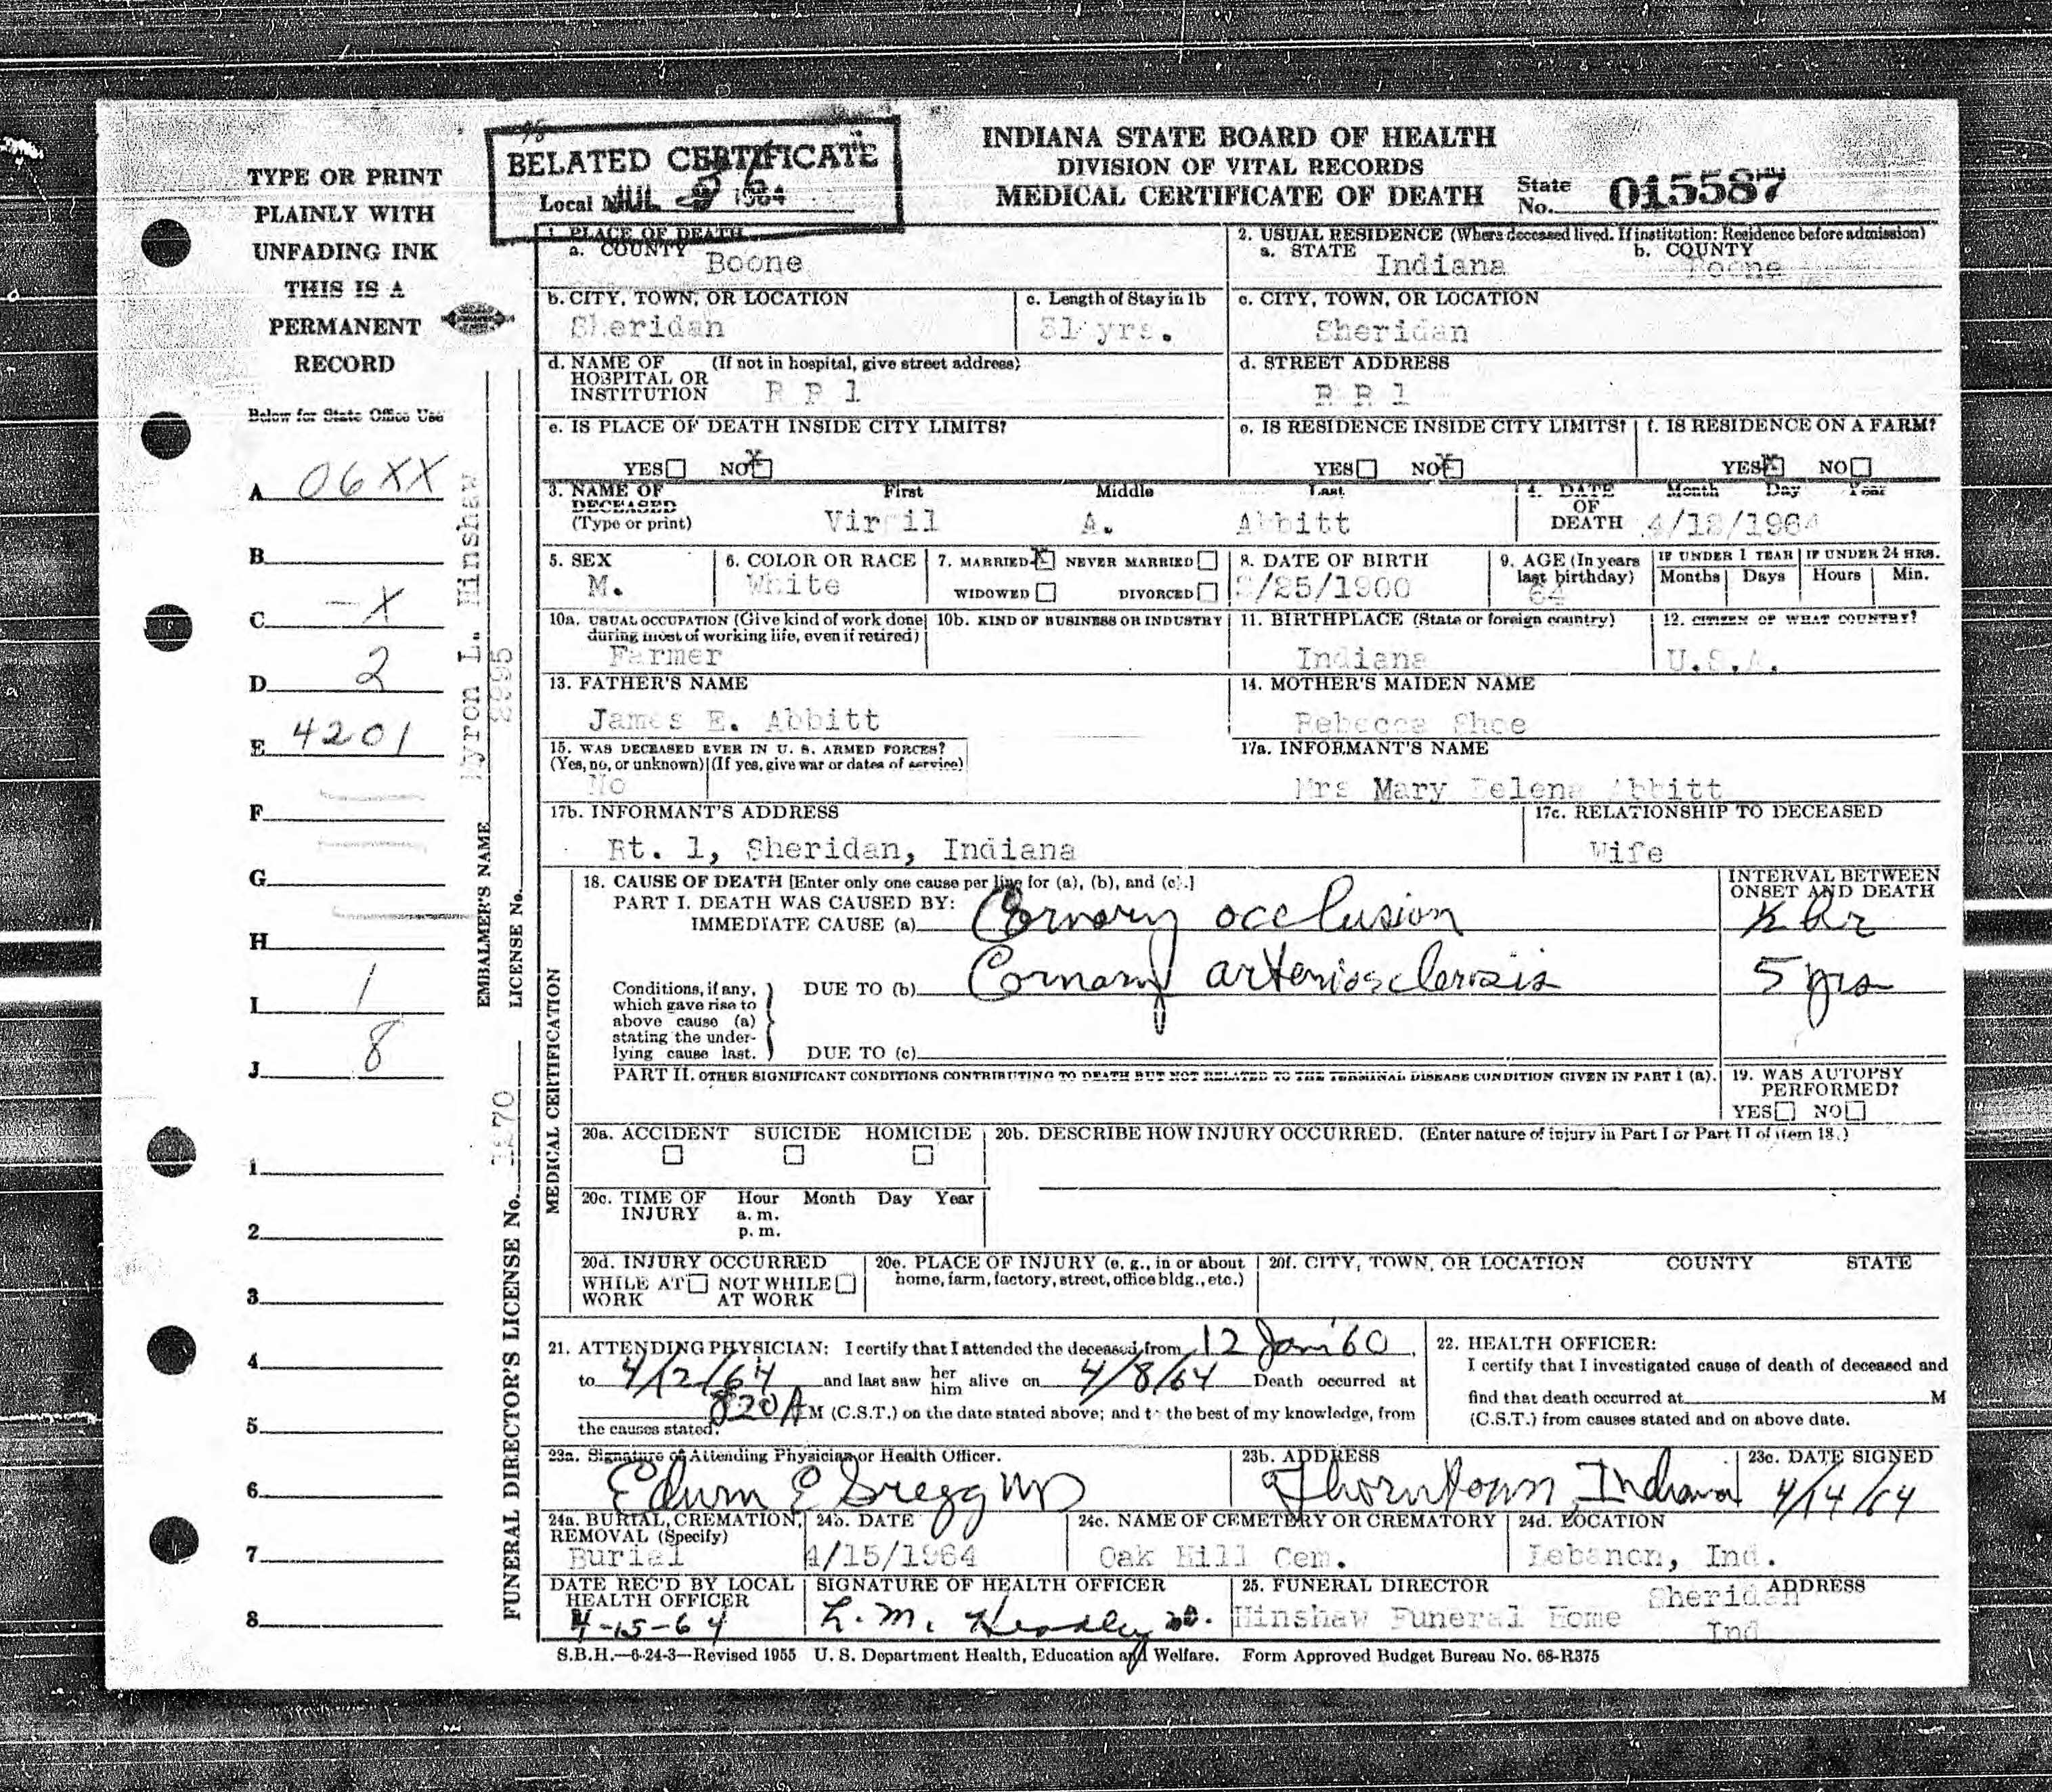 BELATED CERTIFICATE
Local No. JUL 1964
INDIANA STATE BOARD OF HEALTH
DIVISION OF VITAL RECORDS
MEDICAL CERTIFICATE OF DEATH
State No. 015587
TYPE OR PRINT
PLAINLY WITH
UNFADING INK
THIS IS A
PERMANENT
RECORD
Below for State Office Use
A 06XX
B
C -X
D 2
E 4201
F
G
H
I 1
J 8
1
2
3
4
5
6
7
8
EMBALMER'S NAME Myron L. Hinshaw
LICENSE No. 8995
FUNERAL DIRECTOR'S LICENSE No. 1270
1. PLACE OF DEATH
a. COUNTY Boone
2. USUAL RESIDENCE (Where deceased lived. If institution: Residence before admission)
a. STATE Indiana b. COUNTY Boone
b. CITY, TOWN, OR LOCATION Sheridan
c. Length of Stay in 1b 31 yrs.
c. CITY, TOWN, OR LOCATION Sheridan
d. NAME OF HOSPITAL OR INSTITUTION (If not in hospital, give street address) R R 1
d. STREET ADDRESS R R 1
e. IS PLACE OF DEATH INSIDE CITY LIMITS?
YES NO X
e. IS RESIDENCE INSIDE CITY LIMITS?
YES NO X
f. IS RESIDENCE ON A FARM?
YES X NO
3. NAME OF DECEASED (Type or print)
First Middle Last
Virgil A. Abbitt
4. DATE OF DEATH Month Day Year
4/12/1964
5. SEX M.
6. COLOR OR RACE White
7. MARRIED X NEVER MARRIED
WIDOWED DIVORCED
8. DATE OF BIRTH /25/1900
9. AGE (In years last birthday) 64
IF UNDER 1 YEAR Months Days
IF UNDER 24 HRS. Hours Min.
10a. USUAL OCCUPATION (Give kind of work done during most of working life, even if retired) Farmer
10b. KIND OF BUSINESS OR INDUSTRY
11. BIRTHPLACE (State or foreign country) Indiana
12. CITIZEN OF WHAT COUNTRY? U.S.A.
13. FATHER'S NAME James E. Abbitt
14. MOTHER'S MAIDEN NAME Rebecca Shoe
15. WAS DECEASED EVER IN U. S. ARMED FORCES?
(Yes, no, or unknown) (If yes, give war or dates of service)
No
17a. INFORMANT'S NAME Mrs Mary Helena Abbitt
17b. INFORMANT'S ADDRESS Rt. 1, Sheridan, Indiana
17c. RELATIONSHIP TO DECEASED Wife
MEDICAL CERTIFICATION
18. CAUSE OF DEATH [Enter only one cause per line for (a), (b), and (c).]
INTERVAL BETWEEN ONSET AND DEATH
PART I. DEATH WAS CAUSED BY:
IMMEDIATE CAUSE (a) Coronary occlusion ½ hr
Conditions, if any, which gave rise to above cause (a) stating the underlying cause last.
DUE TO (b) Coronary arteriosclerosis 5 yrs
DUE TO (c)
PART II. OTHER SIGNIFICANT CONDITIONS CONTRIBUTING TO DEATH BUT NOT RELATED TO THE TERMINAL DISEASE CONDITION GIVEN IN PART I (a).
19. WAS AUTOPSY PERFORMED?
YES NO
20a. ACCIDENT SUICIDE HOMICIDE
20b. DESCRIBE HOW INJURY OCCURRED. (Enter nature of injury in Part I or Part II of item 18.)
20c. TIME OF INJURY Hour Month Day Year
a. m.
p. m.
20d. INJURY OCCURRED
WHILE AT WORK NOT WHILE AT WORK
20e. PLACE OF INJURY (e. g., in or about home, farm, factory, street, office bldg., etc.)
20f. CITY, TOWN, OR LOCATION COUNTY STATE
21. ATTENDING PHYSICIAN: I certify that I attended the deceased from 12 Jan '60,
to 4/12/64 and last saw her him alive on 4/8/64 Death occurred at
820 A M (C.S.T.) on the date stated above; and to the best of my knowledge, from
the causes stated.
22. HEALTH OFFICER:
I certify that I investigated cause of death of deceased and
find that death occurred at M
(C.S.T.) from causes stated and on above date.
23a. Signature of Attending Physician or Health Officer.
Edwin E Gregg MD
23b. ADDRESS Thorntown, Indiana
23c. DATE SIGNED 4/14/64
24a. BURIAL, CREMATION, REMOVAL (Specify) Burial
24b. DATE 4/15/1964
24c. NAME OF CEMETERY OR CREMATORY Oak Hill Cem.
24d. LOCATION Lebanon, Ind.
DATE REC'D BY LOCAL HEALTH OFFICER 4-15-64
SIGNATURE OF HEALTH OFFICER L. M. Headley MD.
25. FUNERAL DIRECTOR ADDRESS
Hinshaw Funeral Home Sheridan Ind
S.B.H.—6-24-3—Revised 1955 U. S. Department Health, Education and Welfare. Form Approved Budget Bureau No. 68-R375